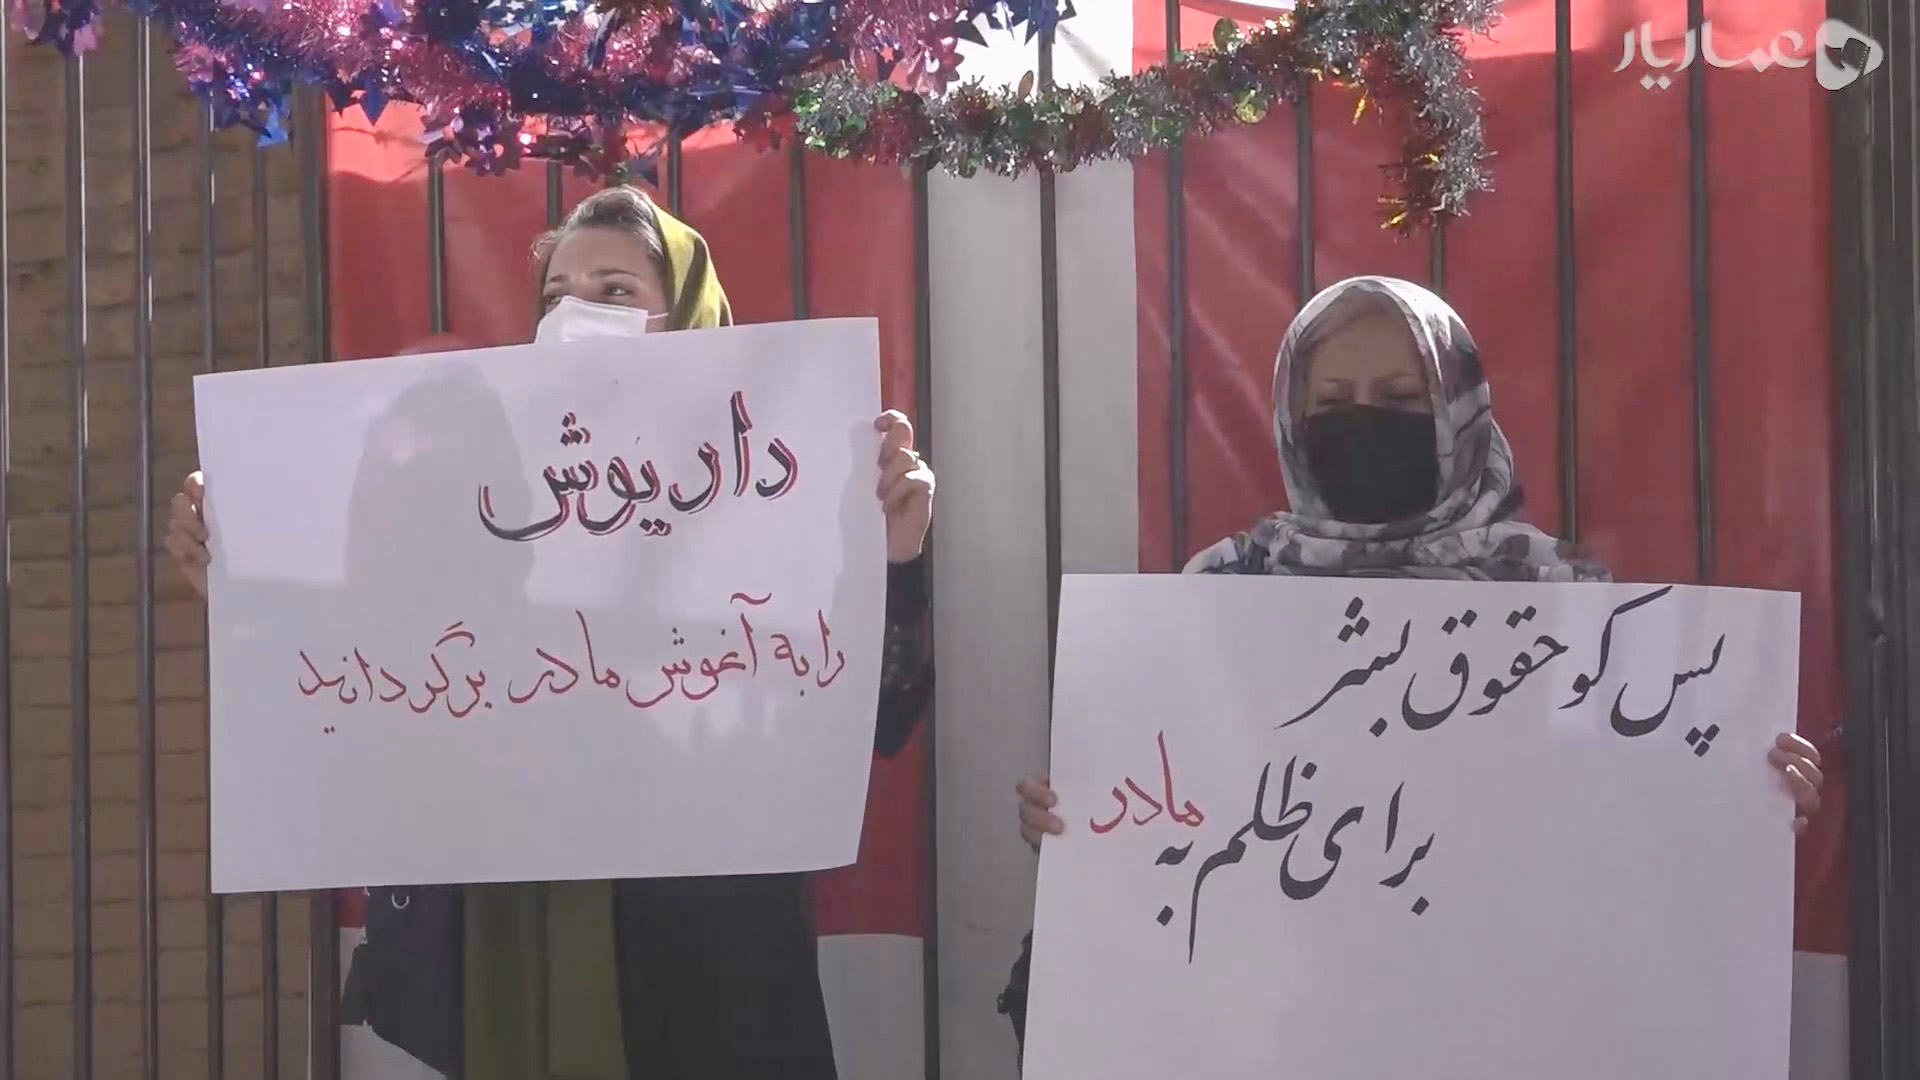 داریوش
را به آغوش مادر برگردانید
پس کو حقوق بشر
برای ظلم به مادر
عماریار